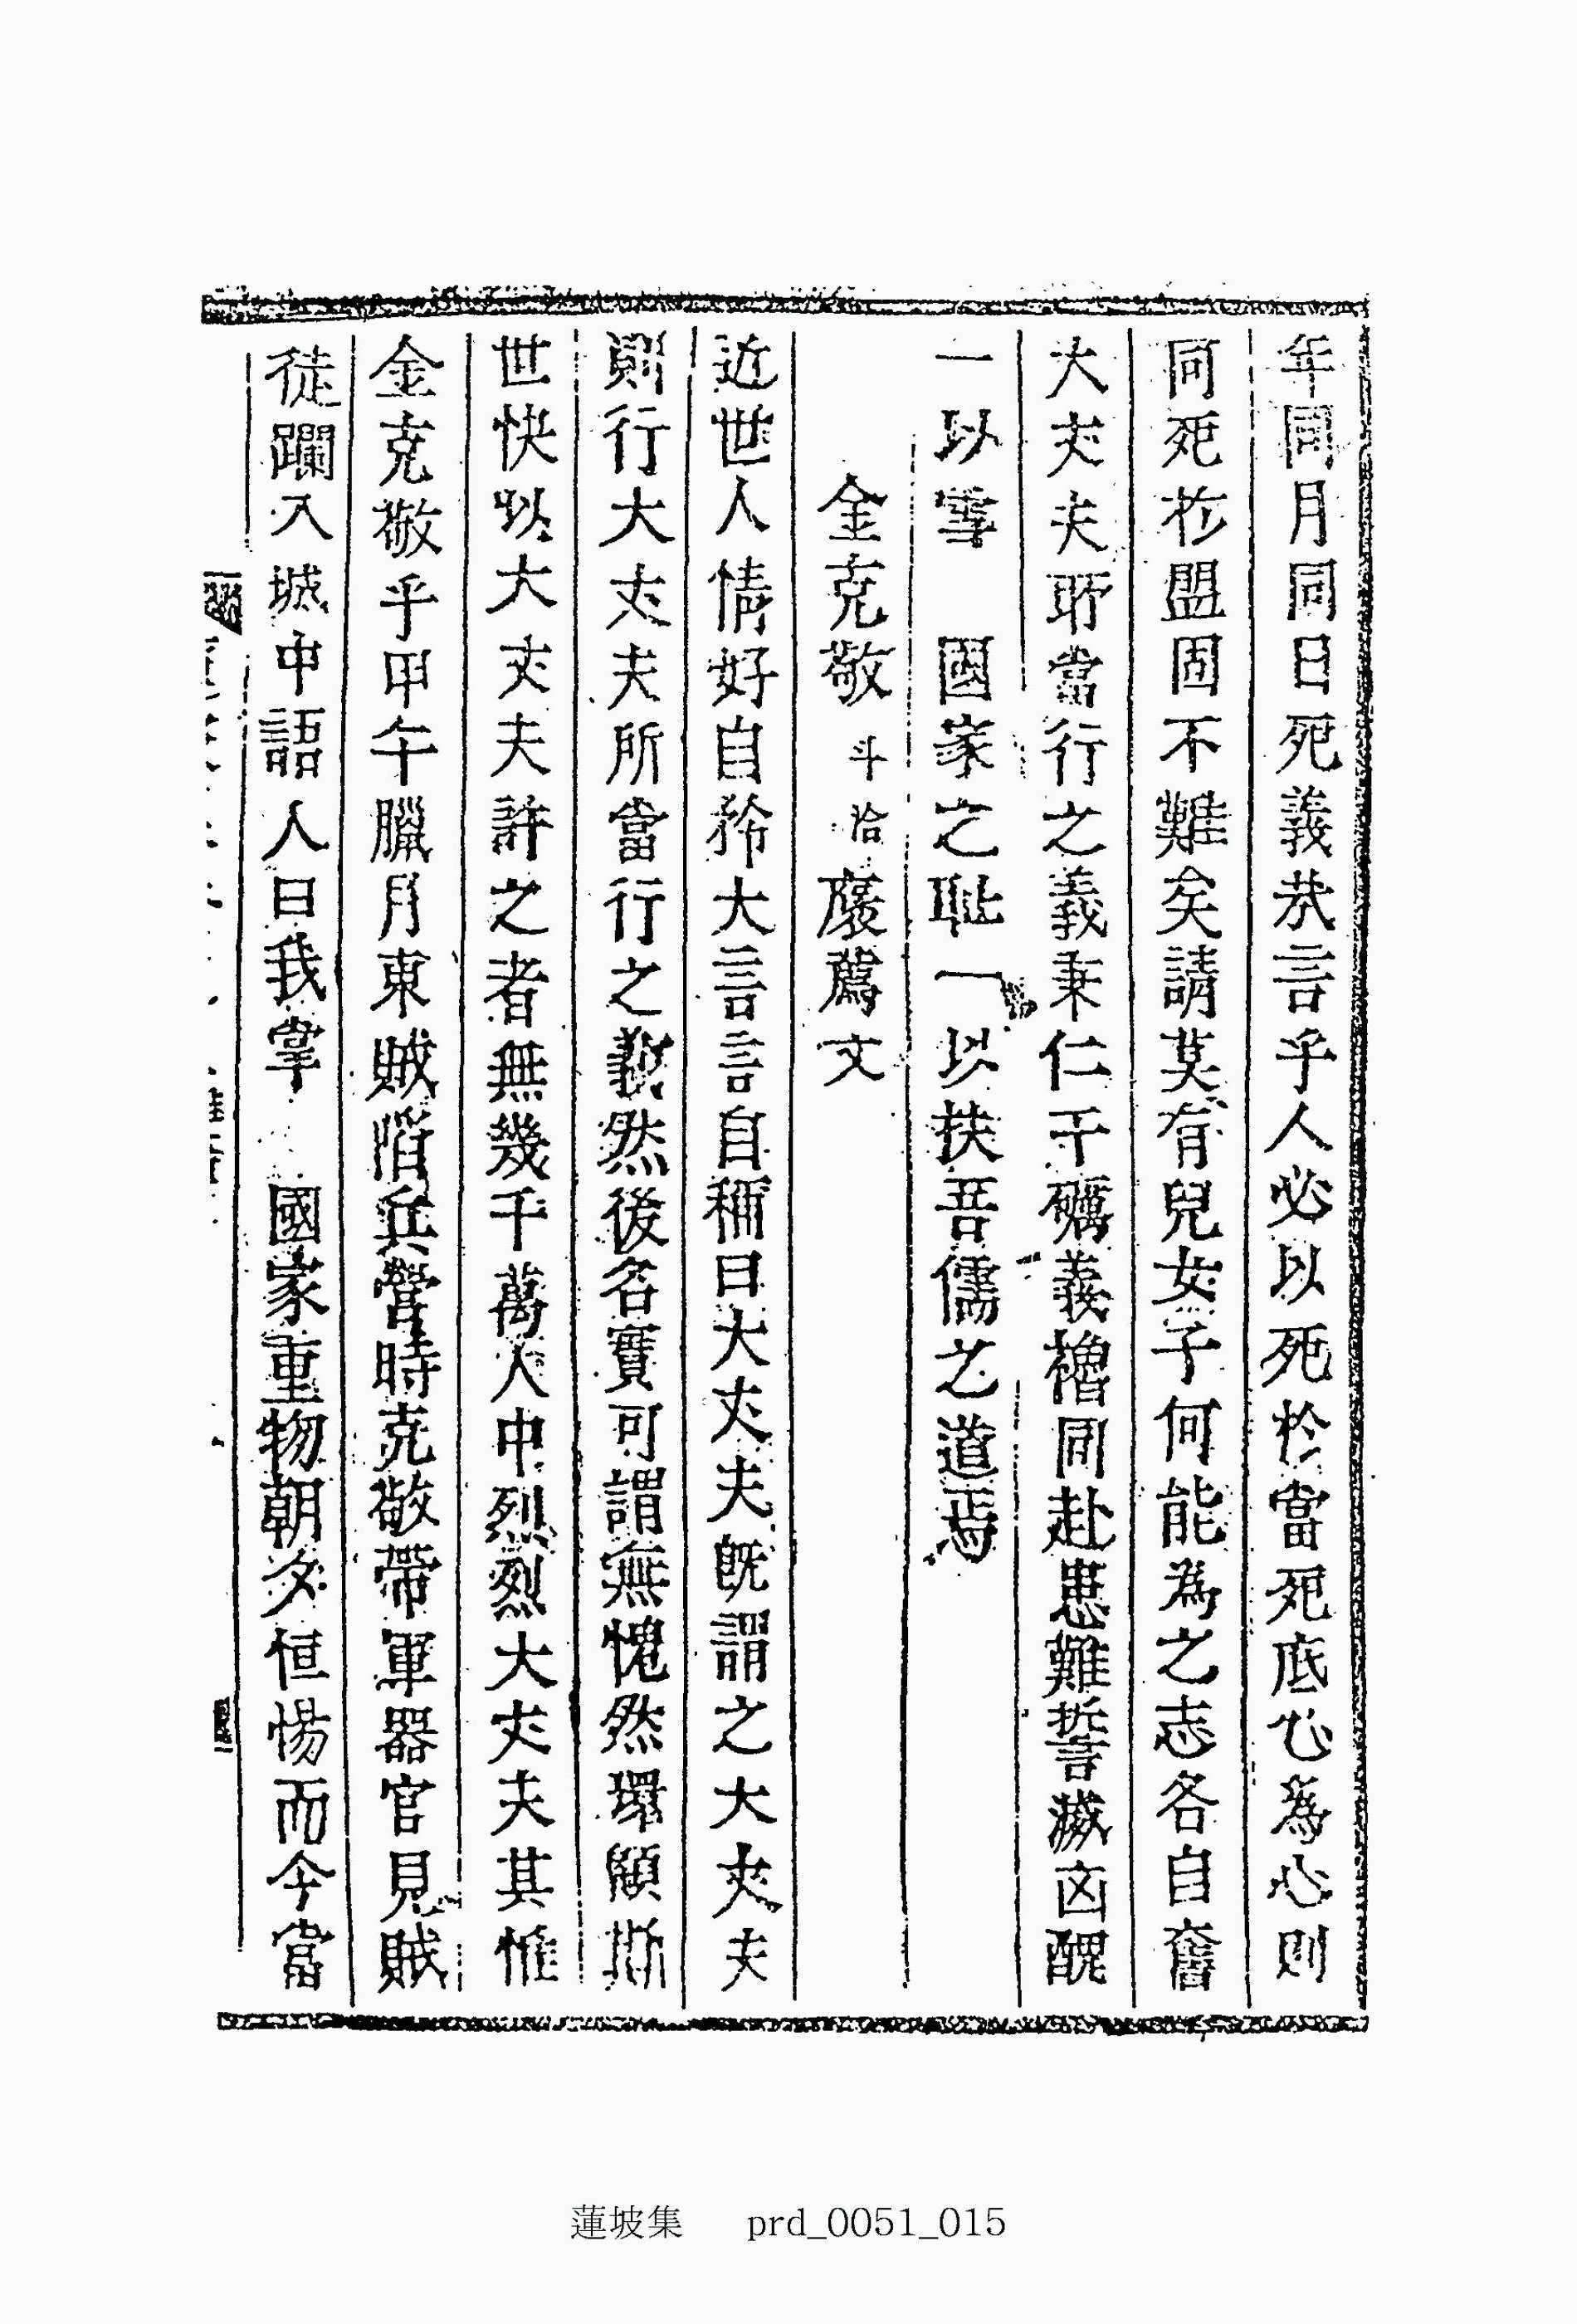 年同月同日死義㢤言乎人必以死於當死底心為心則
同死於盟固不難矣請莫有兒女子何能為之志各自奮
大丈夫所當行之義秉仁干礪義櫓同赴患難誓滅凶醜
一以雪 國家之恥一以扶吾儒之道焉
金克敬 斗洽 褒薦文
近世人情好自矜大言言自稱曰大丈夫旣謂之大丈夫
則行大丈夫所當行之義然後名實可謂無愧然環顧斯
世快以大丈夫許之者無幾千萬人中烈烈大丈夫其惟
金克敬乎甲午臘月東賊滔兵營時克敬帶軍器官見賊
徒躪入城中語人曰我掌 國家重物朝夕恒惕而今當
蓮坡集 prd_0051_015